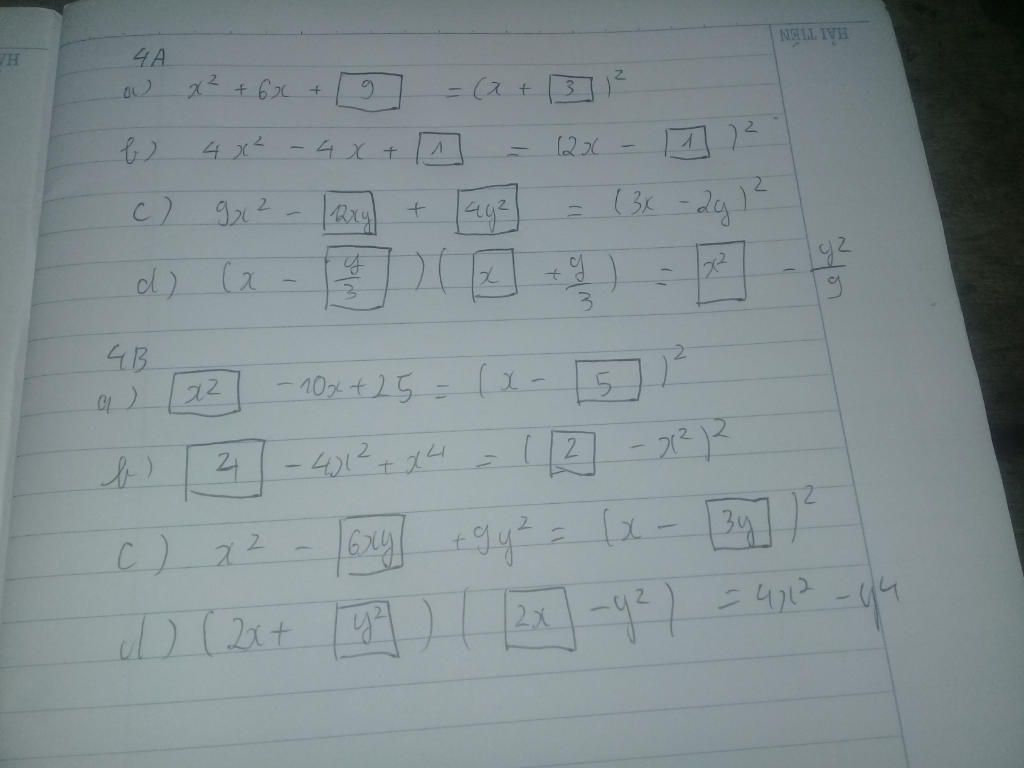 HẢI TIẾN
4A
a) x² + 6x + 9 = (x + 3)²
b) 4x² - 4x + 1 = (2x - 1)²
c) 9x² - 12xy + 4y² = (3x - 2y)²
d) (x - y/3)(x + y/3) = x² - y²/9
4B
a) x² - 10x + 25 = (x - 5)²
b) 4 - 4x² + x⁴ = (2 - x²)²
c) x² - 6xy + 9y² = (x - 3y)²
d) (2x + y²)(2x - y²) = 4x² - y⁴